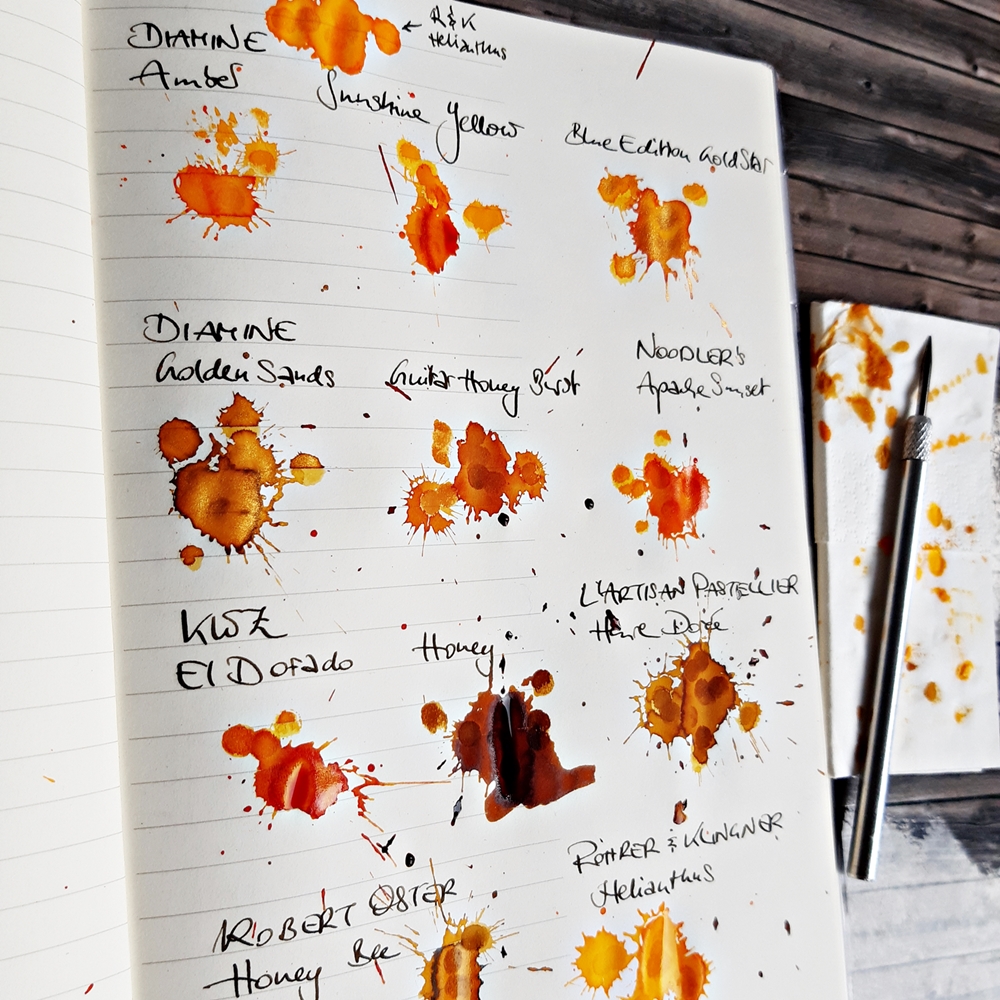 ← R&K
Helianthus
DIAMINE
Amber
Sunshine Yellow
Blue Edition Gold Star
DIAMINE
Golden Sands
Guitar Honey Burst
NOODLER's
Apache Sunset
KWZ
El Dorado
Honey
L'ARTISAN PASTELLIER
Dorée
ROBERT OSTER
Honey Bee
RÖHRER & KLINGNER
Helianthus